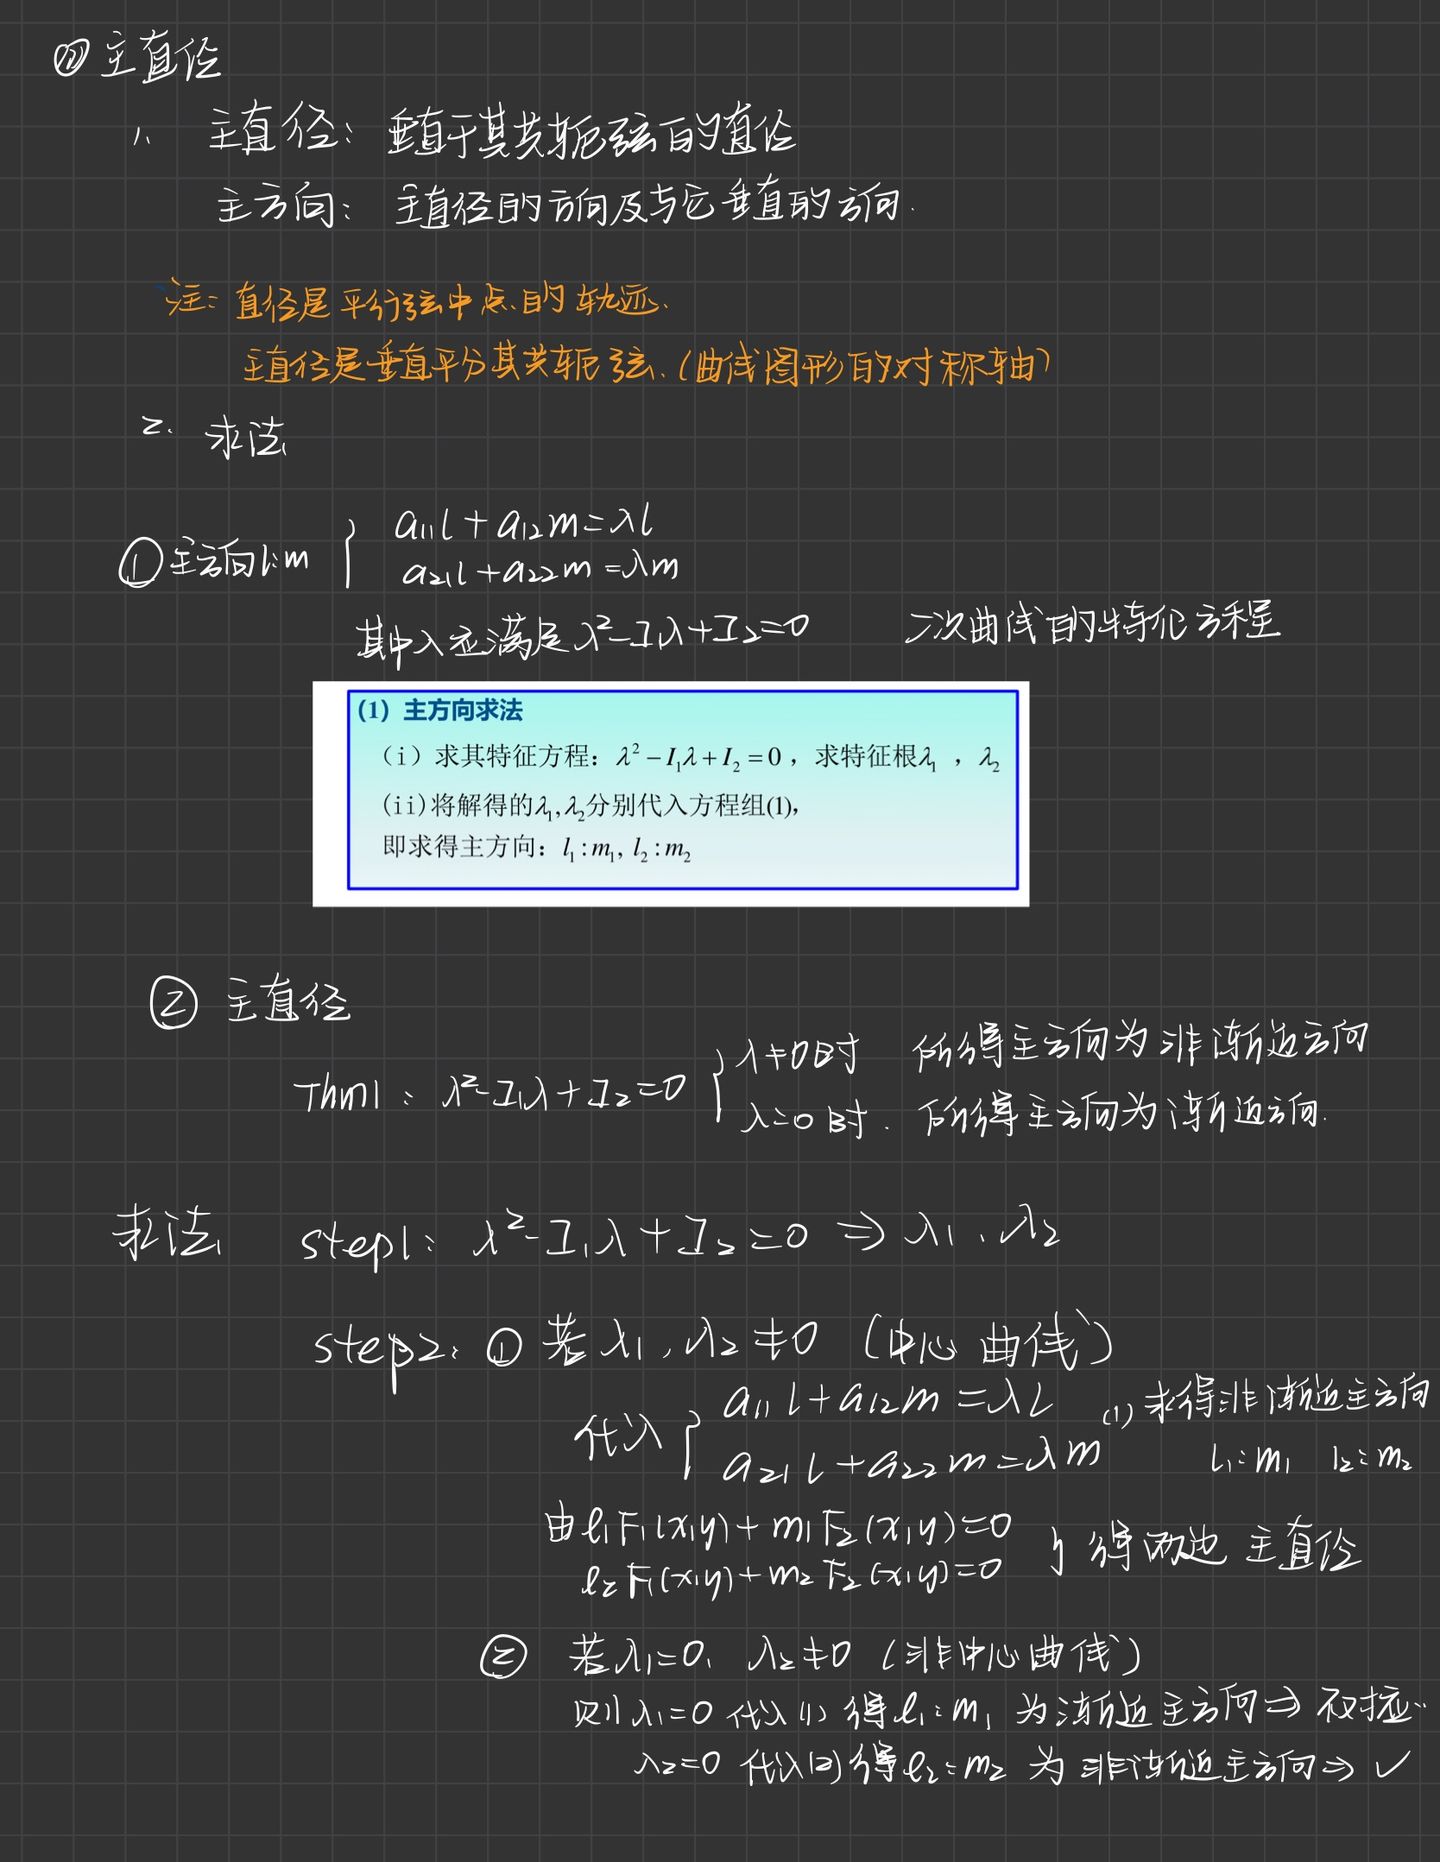 (四) 主直径
1. 主直径: 垂直于其共轭弦的直径
主方向: 主直径的方向及与它垂直的方向.
注: 直径是平行弦中点的轨迹.
主直径是垂直平分其共轭弦. (曲线图形的对称轴)
2. 求法
① 主方向 l:m { a₁₁l + a₁₂m = λl
a₂₁l + a₂₂m = λm
其中λ应满足 λ²-I₁λ+I₂=0 二次曲线的特征方程
(1) 主方向求法
(i) 求其特征方程: λ² − I₁λ + I₂ = 0 , 求特征根λ₁ , λ₂
(ii)将解得的λ₁,λ₂分别代入方程组(1),
即求得主方向: l₁ : m₁, l₂ : m₂
② 主直径
Thm1: λ²-I₁λ+I₂=0 { λ≠0时 所得主方向为非渐近方向
λ=0时. 所得主方向为渐近方向.
求法 step1: λ²-I₁λ+I₂=0 ⇒ λ₁、λ₂
step2: ① 若λ₁,λ₂≠0 (中心曲线)
代入 { a₁₁l+a₁₂m=λl (1) 求得非渐近主方向
a₂₁l+a₂₂m=λm l₁:m₁ l₂:m₂
由 l₁F₁(x,y)+m₁F₂(x,y)=0 } 得两边 主直径
l₂F₁(x,y)+m₂F₂(x,y)=0
② 若λ₁=0, λ₂≠0 (非中心曲线)
则λ₁=0 代入(1) 得l₁:m₁ 为渐近主方向⇒
λ₂=0 代入(2)得l₂:m₂ 为非渐近主方向⇒ ✓